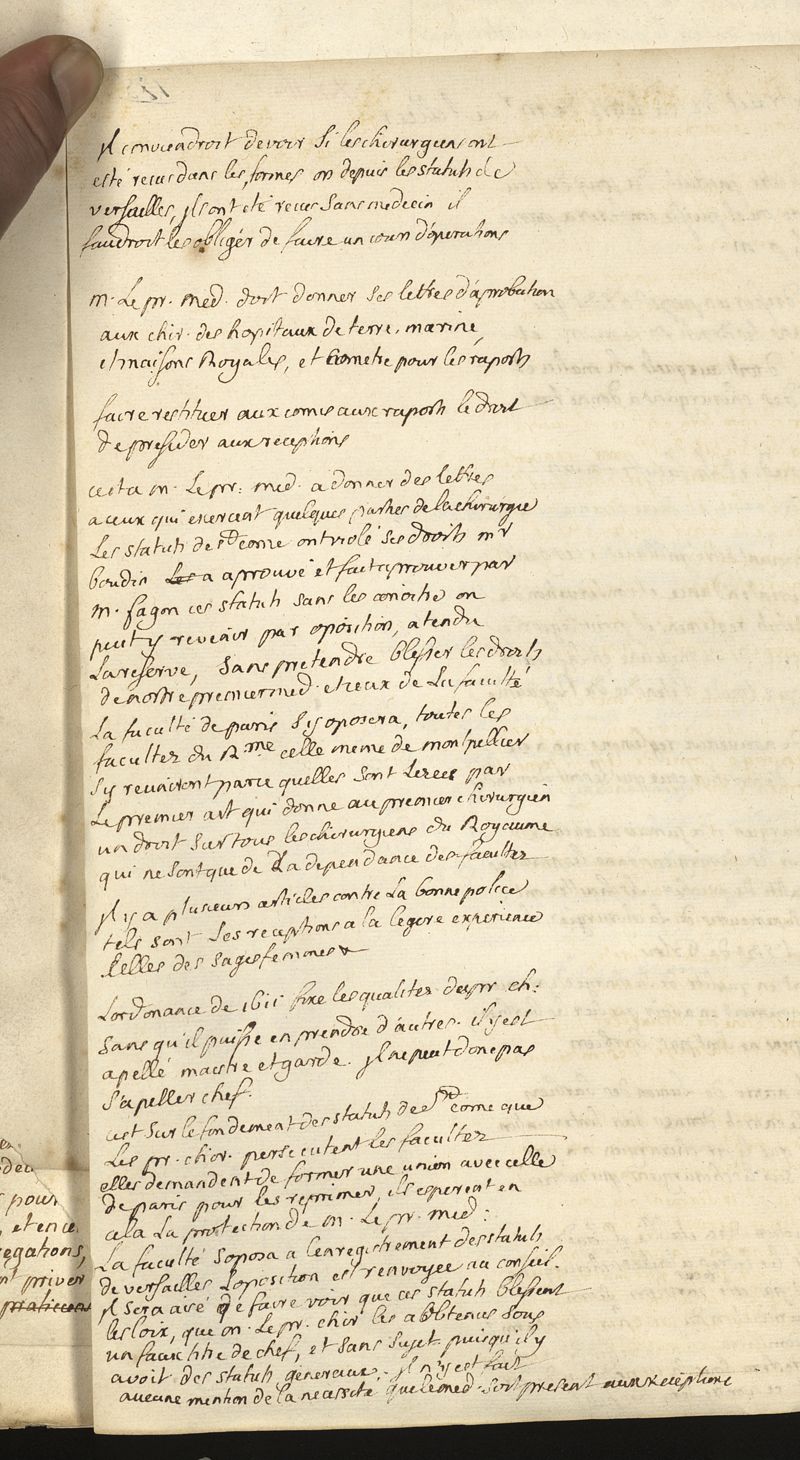 Jl conviendroit de voir Si les chirurgiens ont
esté recus dans les formes ou depuis les statuts de
versailles, jls ont eté recus Sans medecin il
faudroit les obligér de faire un cours d'operations
m. Le pr. med. doit donner Ses lettres d'aprobation
aux chir. des hopitaux de terre, marine,
et maisons Royales, et comettre pour les raports
faire restituer aux comis aux raports le droit
de presider aux receptions
cest a m. Le pr. med. a donner des lettres
a ceux qui exercent quelques parties de la chirurgie
Les statuts de St come ont violé Ses droits mr
boudin Les a aprouvé et fait aprouver par
m. fagon ces statuts Sans les conoitre on
peut y revenir par oposition, atendu
La reserve, Sans pretendre blesser les droits
de notre premier med. et ceux de La faculté
La faculté de paris S'y oposera, toutes les
facultez du Rme celle meme de montpellier
S'y reuniront parce quelles Sont Lezees par
Le premier art qui donne au premier chirurgien
un droit Sur tous les chirurgiens du Royaume
qui ne Sont que de La dependance des facultez
jl y a plusieurs articles contre La bonne police
tels Sont Les receptions a la legere experience
Celles des Sages femmes &
Lordonance de 1611 fixe les qualitez du pr ch:
Sans qu'il puisse en prendre d'autres. il y est
apellé maitre et garde. jl ne peut donc pas
S'apeller chef.
cest Sur le fondement des statuts de St come que
Les pr. chir. persecutent les facultez
elles demandent de former une union avec celle
de paris pour les reprimer, ils esperent en
cela La protection de m. Le pr. med:
La faculté Soposa a lenregistrement des statuts
de versailles Loposition est renvoyée au conseil.
jl Sera aisé de faire voir que ces statuts blessent
les loix, que m. Le pr. chir les a obtenus Sous
un faux titre de chef, et Sans Sujet puisqu'il y
avoit des statuts generaux. jl n'y est fait
aucune mention de la necessité que le med. Soit present aux receptions
pour
et en ce
regations,
priver